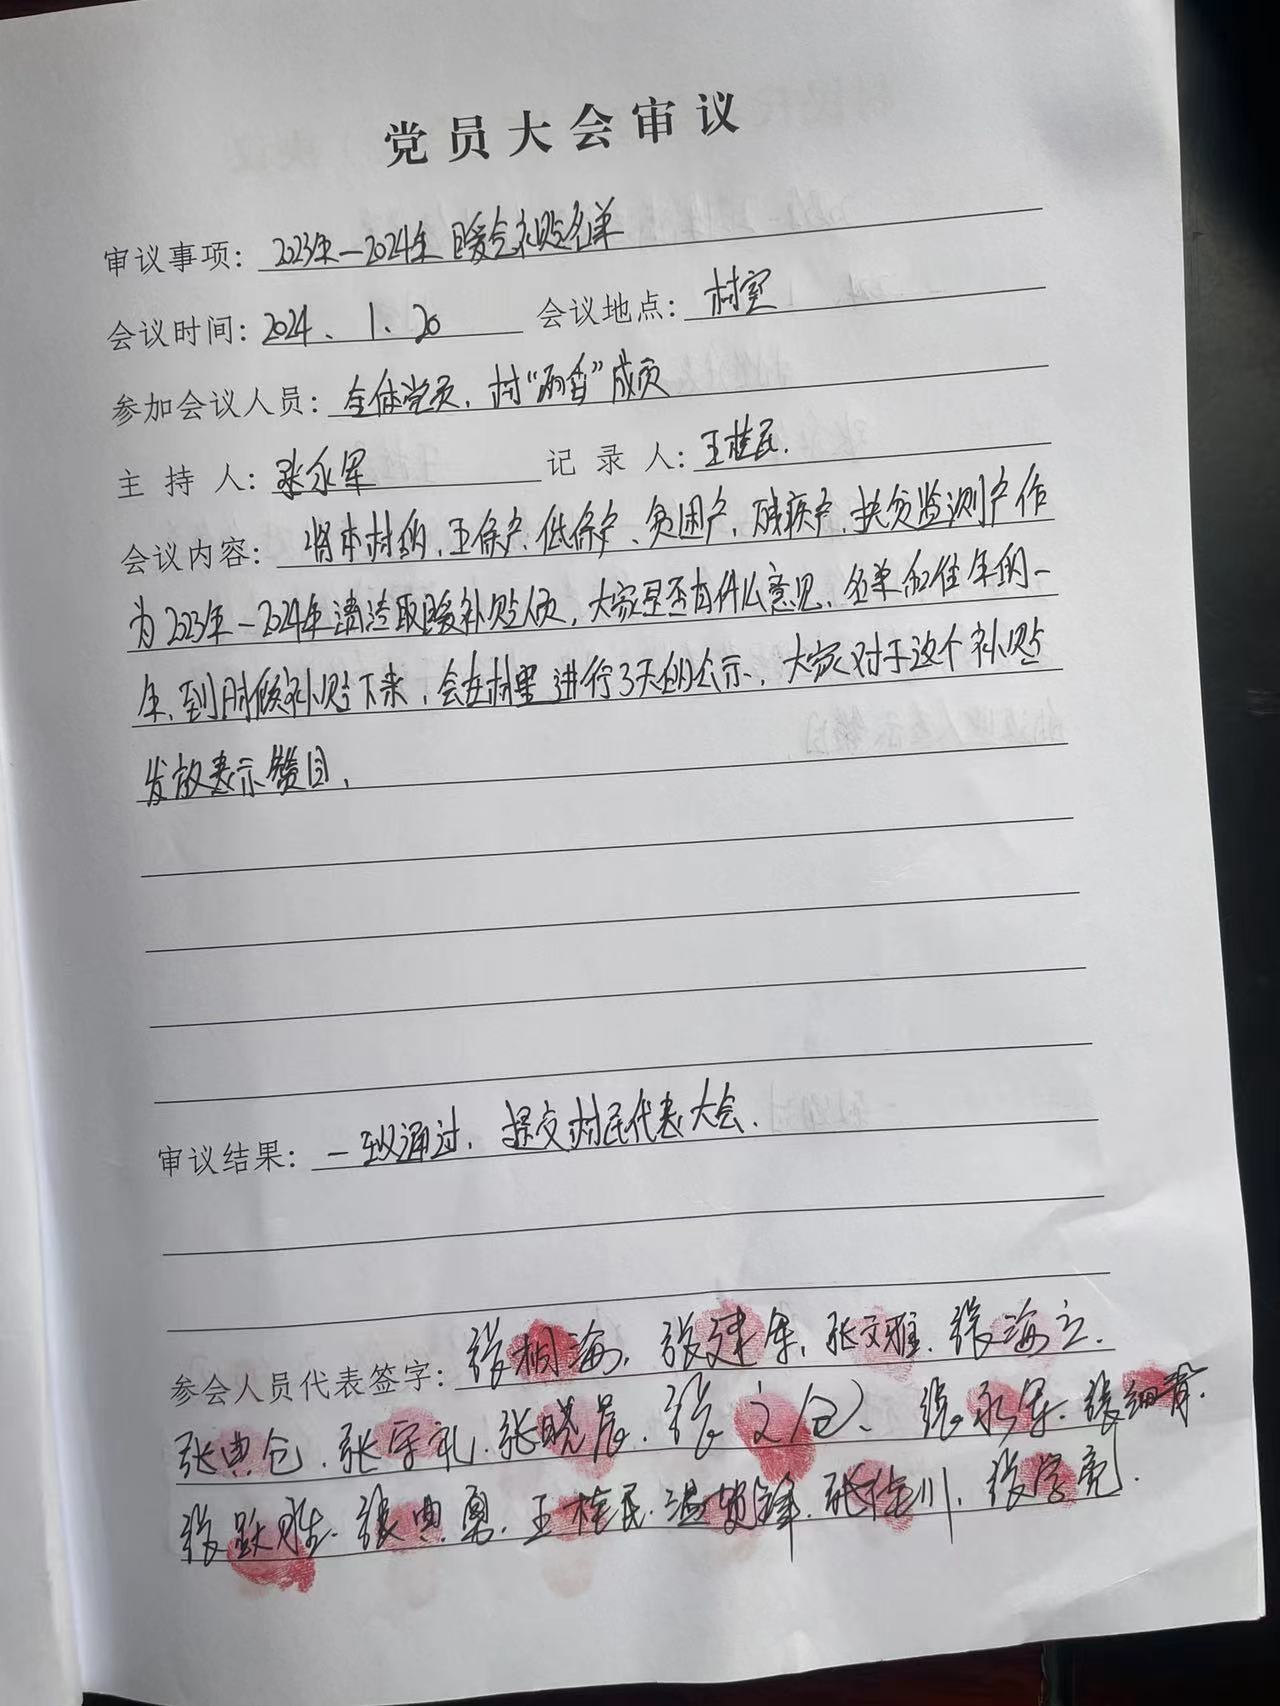 党员大会审议
审议事项：2023年—2024年 暖气补贴名单
会议时间：2024、1、20 会议地点：村室
参加会议人员：全体党员，村“两委”成员
主持人：张永军 记录人：王桂民.
会议内容：将本村的，五保户、低保户、贫困户，残疾户，扶贫监测户作
为2023年—2024年清洁取暖补贴人员，大家是否有什么意见，名单和往年的一
年，到时候补贴下来，会在村里进行3天的公示，大家对于这个补贴
发放表示赞同，
审议结果：一致通过，提交村民代表大会.
参会人员代表签字：张桐海，张建军，张文雅，张海立.
张典仓，张字礼，张晓晨，张文仓、张永军，张细青.
张跃胜，张典勇，王桂民，温锁锋，张桂川，张学亮.